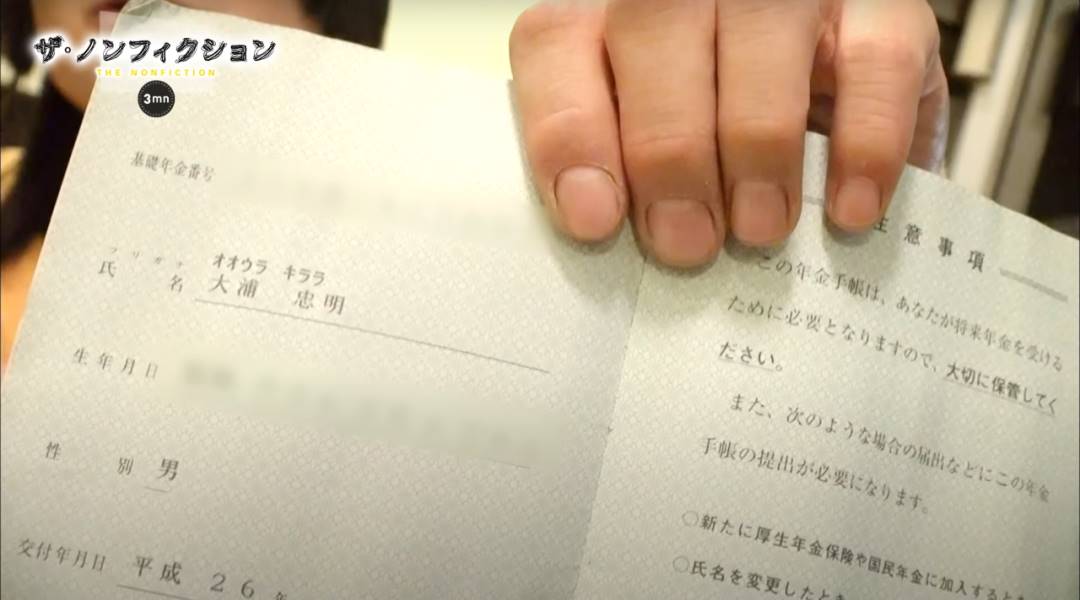 ザ・ノンフィクション
THE NONFICTION
3mn
基礎年金番号
フリガナ オオウラ キララ
氏名 大浦 忠明
生年月日
性別 男
交付年月日 平成 26年
注意事項
この年金手帳は、あなたが将来年金を受ける
ために必要となりますので、大切に保管してく
ださい。
また、次のような場合の届出などにこの年金
手帳の提出が必要になります。
○新たに厚生年金保険や国民年金に加入するとき
○氏名を変更したとき